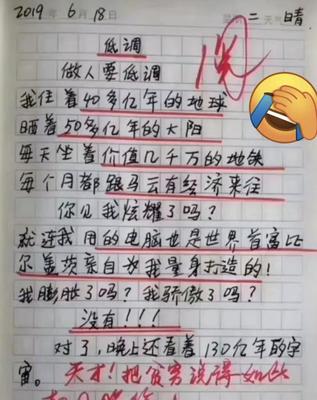 2019年6月18日 星期二 天气 晴
低调
做人要低调
我住着40多亿年的地球
晒着50多亿年的太阳
每天坐着价值几千万的地铁
每个月都跟马云有经济来往
你见我炫耀了吗?
就连我用的电脑也是世界首富比
尔盖茨亲自为我量身打造的!
我膨胀了吗?我骄傲了吗?
没有!!!
对了,晚上还看着130亿年的宇
宙。天才!把贫穷说得如此
阅